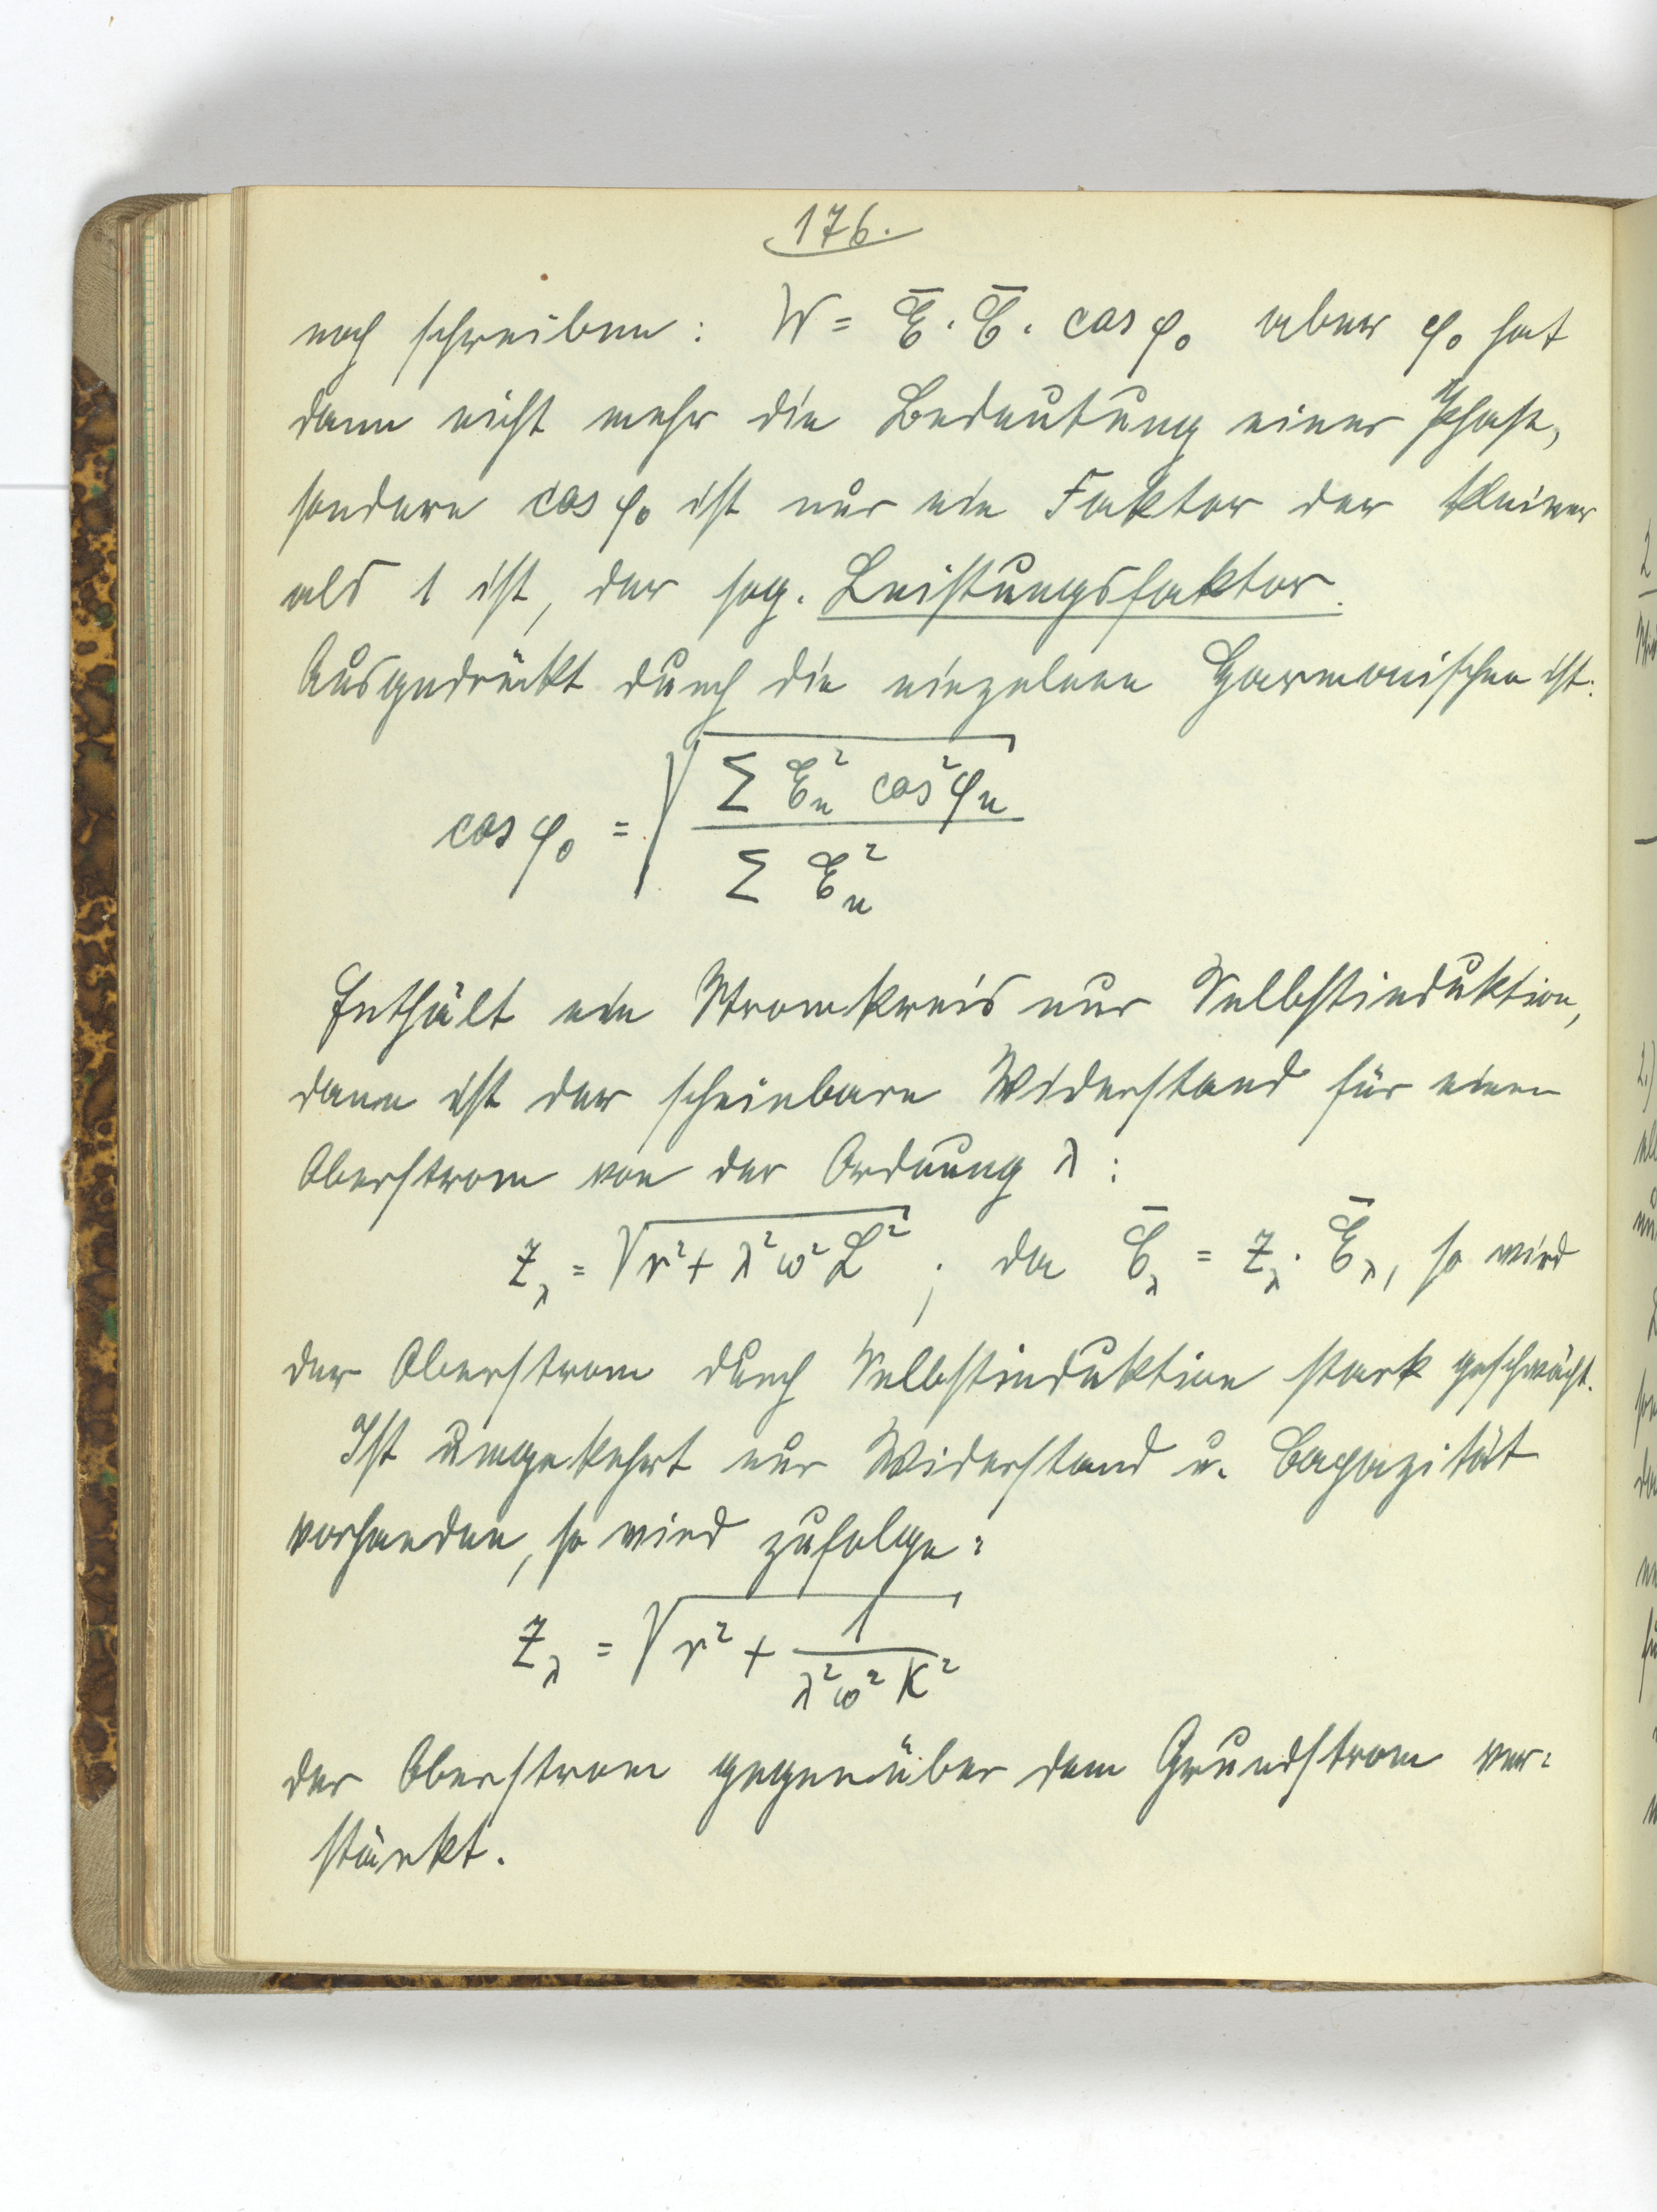 176.
noch schreiben: W = Ē · C̄ · cos φ₀ aber φ₀ hat
dann nicht mehr die Bedeutung einer Phase,
sondern cos φ₀ ist nur ein Faktor der kleiner
als 1 ist, der sog. Leistungsfaktor.
Ausgedrückt durch die einzelnen Harmonischen ist:
cos φ₀ = √(Σ E_n² cos² φ_n / Σ E_n²)
Enthält ein Stromkreis nur Selbstinduktion,
dann ist der scheinbare Widerstand für einen
Oberstrom von der Ordnung λ:
z_λ = √(r² + λ²ω²L²) ; da C̄_λ = z_λ · Ē_λ, so wird
der Oberstrom durch Selbstinduktion stark geschwächt.
Ist umgekehrt nur Widerstand u. Capazität
vorhanden, so wird zufolge:
z_λ = √(r² + 1/(λ²ω²K²))
der Oberstrom gegenüber dem Grundstrom ver=
stärkt.